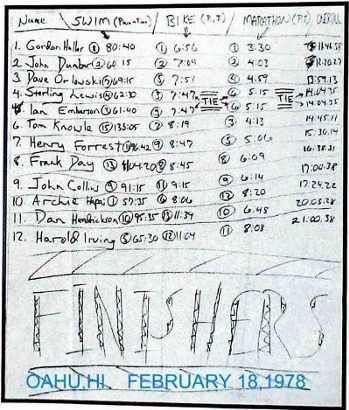 Name SWIM BIKE (P,T) MARATHON (P,T)
1. Gordon Haller ⑧ 80:40 ① 6:56 ① 3:30
2. John Dunbar ② 60:15 ② 7:04 ② 4:03
3. Dave Orlowski 69:15 ⑤ 7:51 4:59 13:59.13
4. Sterling Lewis ④ 62:30 7:47 TIE 5:15 TIE 14.04.35
Ian Emberson ③ 61:40 7:47 5:15 14.04.35
6. Tom Knowle ⑮ 135:05 8:19 4:13 14.45.11
7. Henry Forrest 96:42 ⑨ 8:47 5:06 15.30.14
8. Frank Day 8:45 6:09 16.38.31
9. John Collins ⑨ 91:15 ⑪ 9:15 6:14 17:00.38
10. Archie Hapai ① 57:35 ⑥ 8:06 8:20 17.24.22
11. Dan Hendrickson ⑩ 95:35 11:39 ⑩ 6:48 20.03.28
12. Harold Irving ⑤ 65:30 ⑫ 11:04 ⑪ 8:03 21:00.38
FINISHERS
OAHU,HI FEBRUARY 18,1978